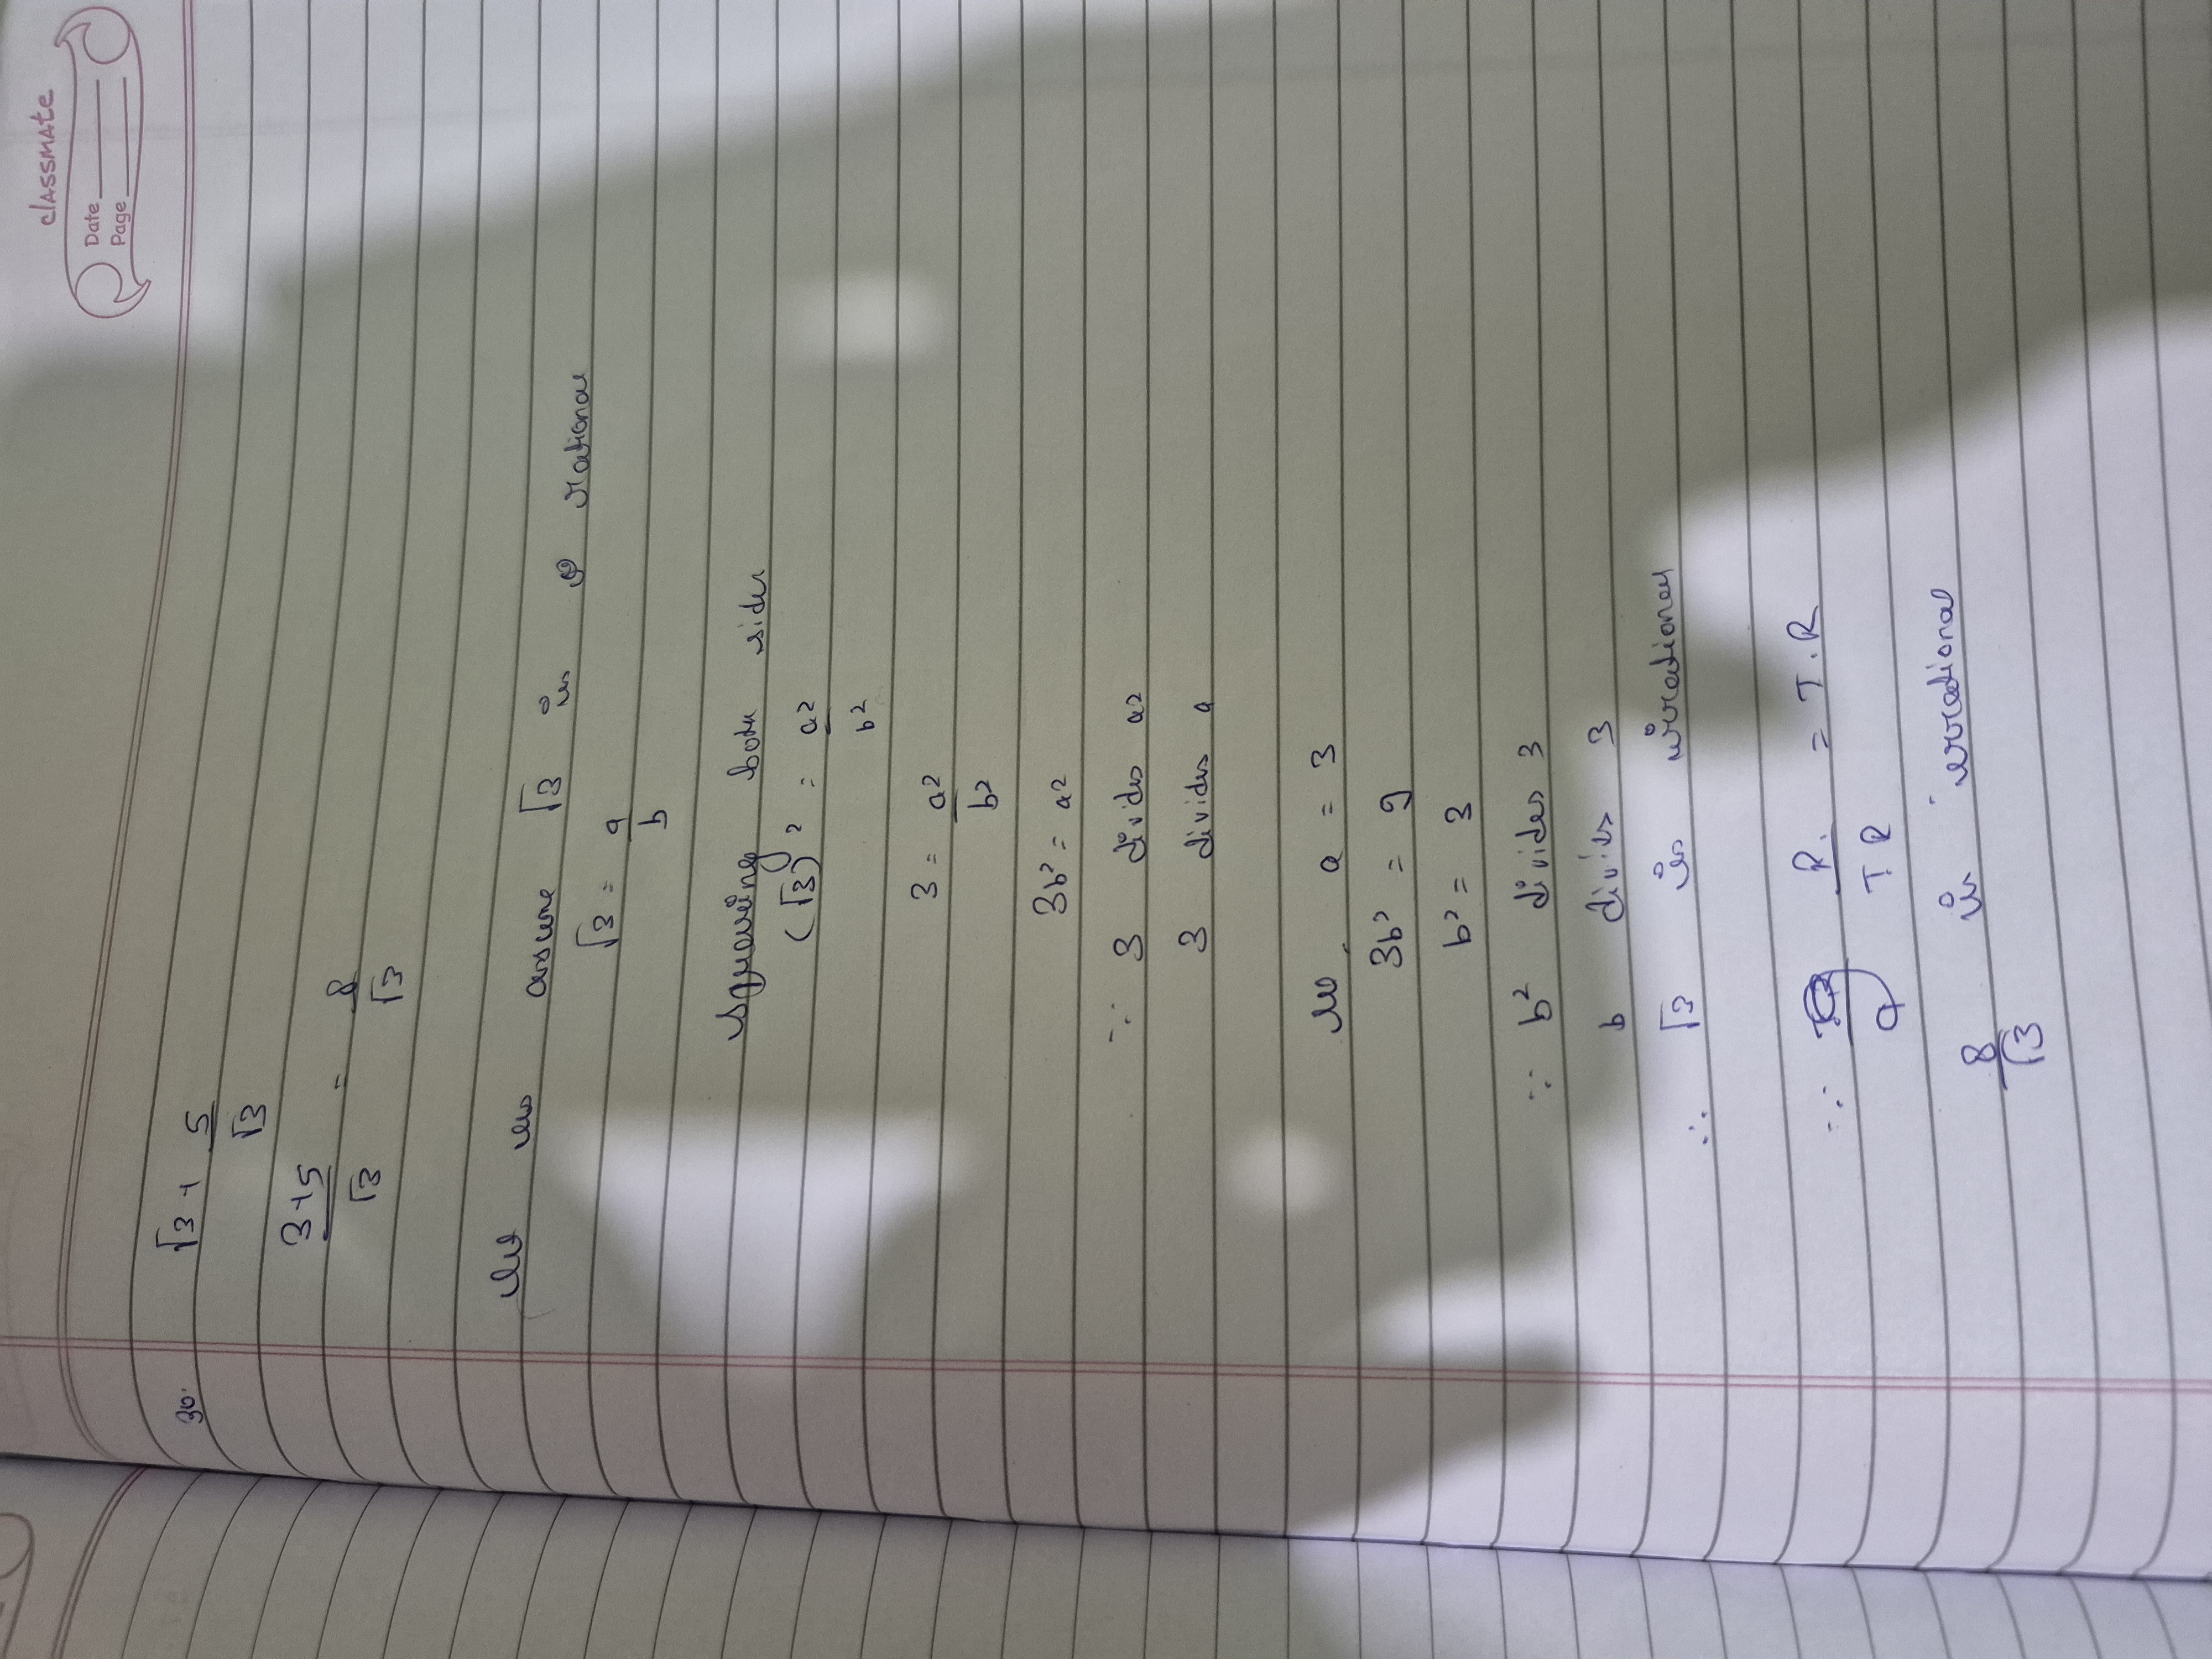 classmate
Date
Page
30. √3 + 5/√3
3+5/√3 = 8/√3
let us assume √3 is rational
√3 = a/b
squaring both sides
(√3)² = a²/b²
3 = a²/b²
3b² = a²
∴ 3 divides a²
3 divides a
let a = 3
3b² = 9
b² = 3
∵ b² divides 3
b divides 3
∴ √3 is irrational
∵ R/IR = I.R
8/√3 is irrational